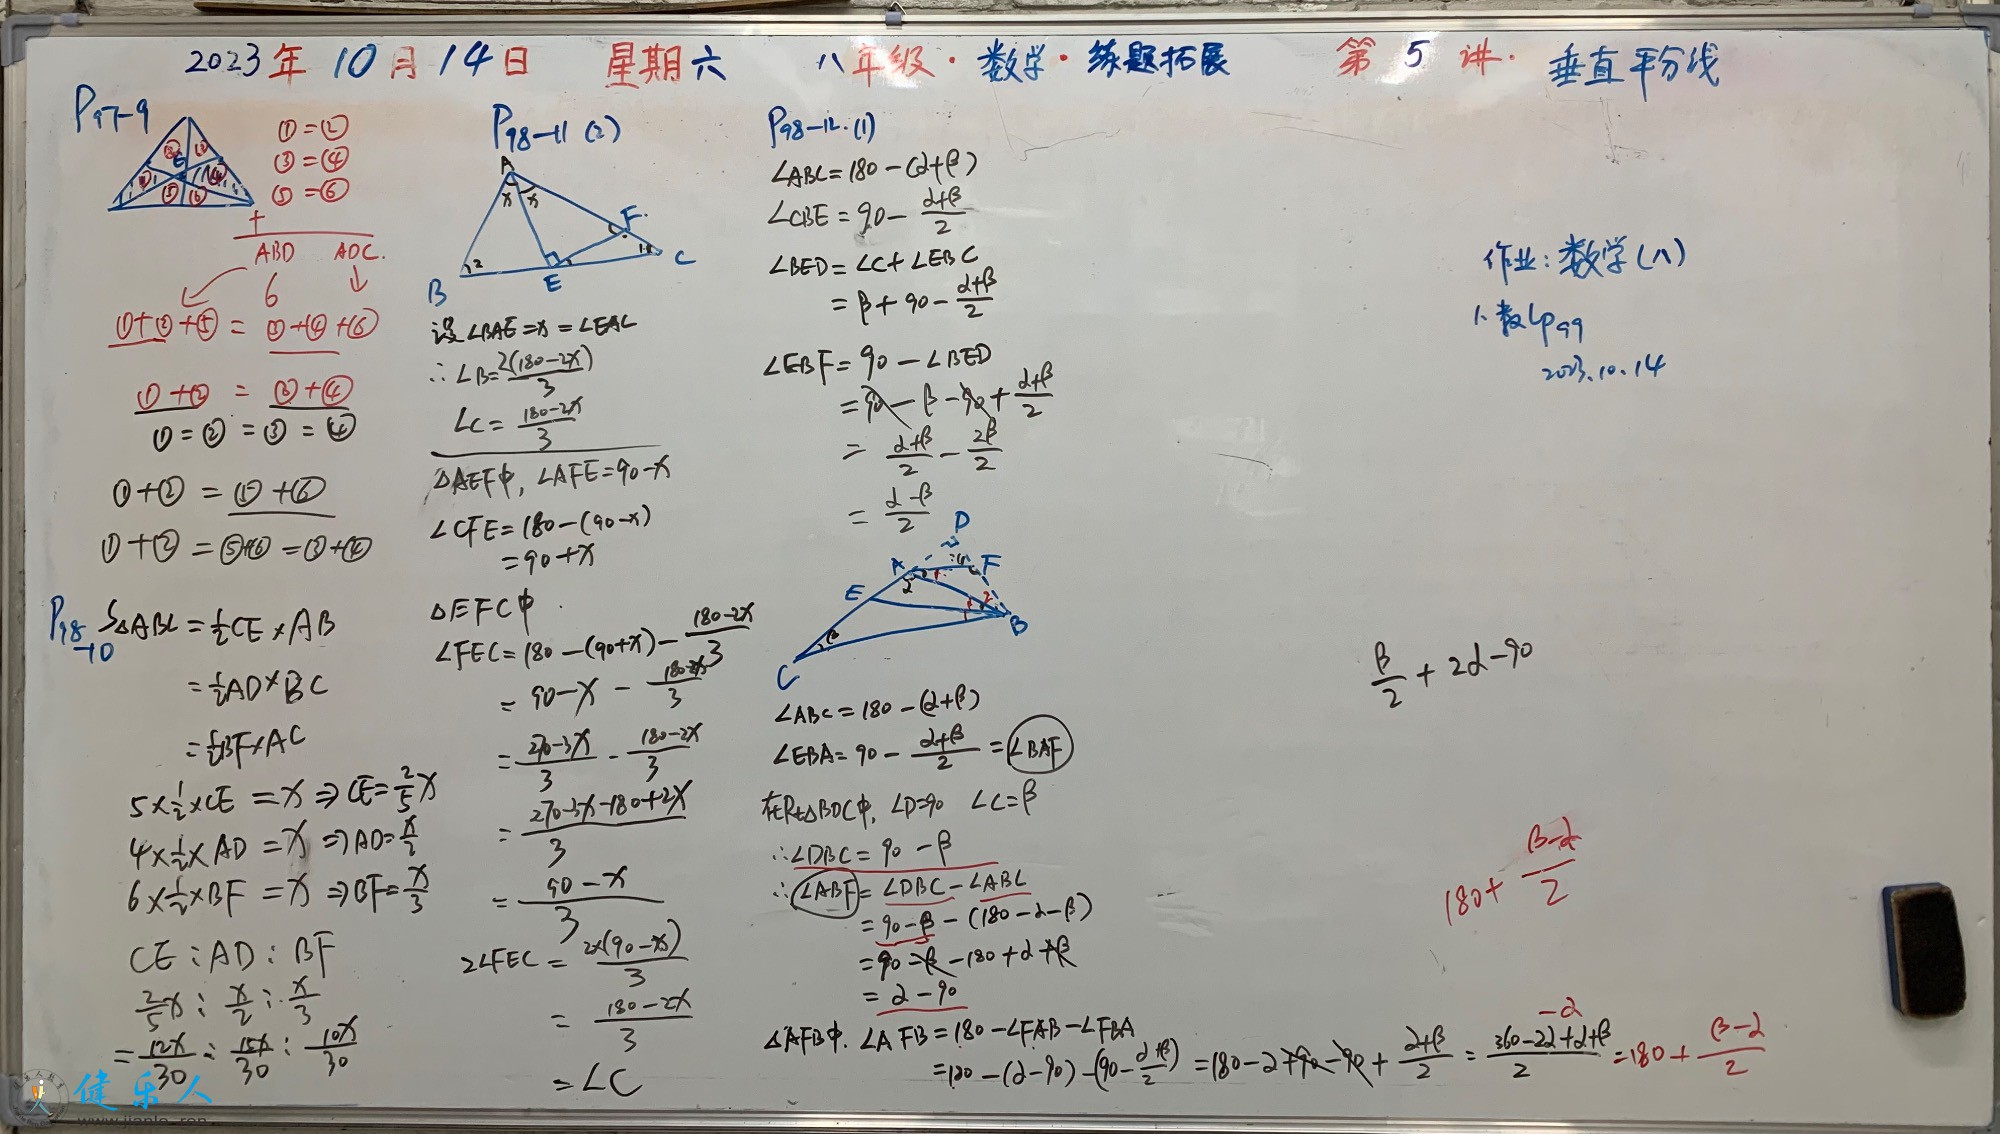 2023年10月14日 星期六 八年级·数学·练题拓展 第5讲·垂直平分线
P97-9
①=②
③=④
⑤=⑥
+
ABD ADC.
6
①+②+⑤=③+④+⑥
①+②=③+④
①=②=③=④
①+②=⑤+⑥
①+②=⑤+⑥=③+④
P98-10
S△ABC=½CE×AB
=½AD×BC
=½BF×AC
5×½×CE=x⇒CE=2/5x
4×½×AD=x⇒AD=x/2
6×½×BF=x⇒BF=x/3
CE:AD:BF
2/5x:x/2:x/3
=12x/30:15x/30:10x/30
P98-11(2)
A
x x
F.
B 2 E C
设∠BAE=x=∠EAC
∴∠B=2(180-2x)/3
∠C=(180-2x)/3
△AEF中,∠AFE=90-x
∠CFE=180-(90-x)
=90+x
△EFC中
∠FEC=180-(90+x)-(180-2x)/3
=90-x-(180-2x)/3
=(270-3x)/3-(180-2x)/3
=(270-3x-180+2x)/3
=(90-x)/3
2∠FEC=2×(90-x)/3
=(180-2x)/3
=∠C
P98-12.(1)
∠ABC=180-(α+β)
∠CBE=90-(α+β)/2
∠BED=∠C+∠EBC
=β+90-(α+β)/2
∠EBF=90-∠BED
=90-β-90+(α+β)/2
=(α+β)/2-2β/2
=(α-β)/2
D
A F
E
B
C
∠ABC=180-(α+β)
∠EBA=90-(α+β)/2=∠BAF
在Rt△BDC中,∠D=90 ∠C=β
∴∠DBC=90-β
∴∠ABF=∠DBC-∠ABC
=90-β-(180-α-β)
=90-β-180+α+β
=α-90
△AFB中.∠AFB=180-∠FAB-∠FBA
=180-(α-90)-(90-(α+β)/2)=180-α+90-90+(α+β)/2=(360-2α+α+β)/2=180+(β-α)/2
-α
作业:数学(八)
1.数LP99
2023.10.14
β/2+2α-90
180+(β-α)/2
健乐人